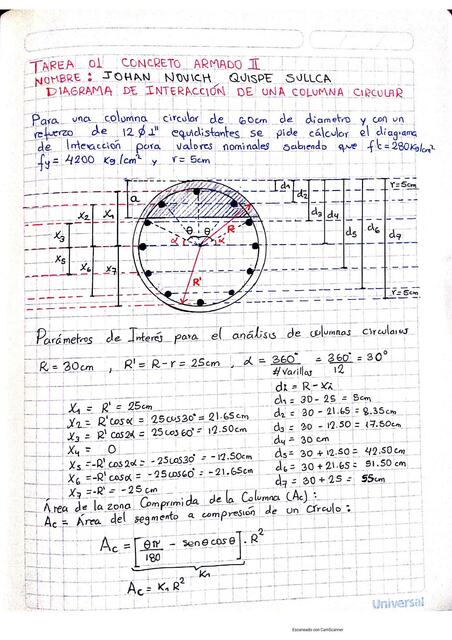 TAREA 01 CONCRETO ARMADO II
NOMBRE: JOHAN NOVICH QUISPE SULLCA
DIAGRAMA DE INTERACCIÓN DE UNA COLUMNA CIRCULAR
Para una columna circular de 60cm de diametro y con un
refuerzo de 12 Ø 1" equidistantes se pide cálcular el diagrama
de Interacción para valores nominales sabiendo que f'c=280Kg/cm²
fy = 4200 Kg/cm² y r=5cm
a
X2 X1
X3
X5
X6 X7
θ θ
α α
R
R'
d1
d2
d3
d4
d5
d6
d7
r=5cm
r=5cm
Parámetros de Interés para el análisis de columnas circulares
R = 30cm , R' = R-r = 25cm , α = 360°/#varillas = 360°/12 = 30°
di = R - Xi
X1 = R' = 25cm
X2 = R'cosα = 25cos30° = 21.65cm
X3 = R'cos2α = 25cos60° = 12.50cm
X4 = 0
X5 = -R'cos2α = -25cos30° = -12.50cm
X6 = -R'cosα = -25cos60° = -21.65cm
X7 = -R' = -25cm
d1 = 30 - 25 = 5cm
d2 = 30 - 21.65 = 8.35cm
d3 = 30 - 12.50 = 17.50cm
d4 = 30 cm
d5 = 30 + 12.50 = 42.50cm
d6 = 30 + 21.65 = 51.50 cm
d7 = 30 + 25 = 55cm
Área de la zona Comprimida de la Columna (Ac):
Ac = Área del segmento a compresión de un Círculo:
Ac = [θπ/180 - senθcosθ] . R²
K1
Ac = K1 R²
Universal
Escaneado con CamScanner